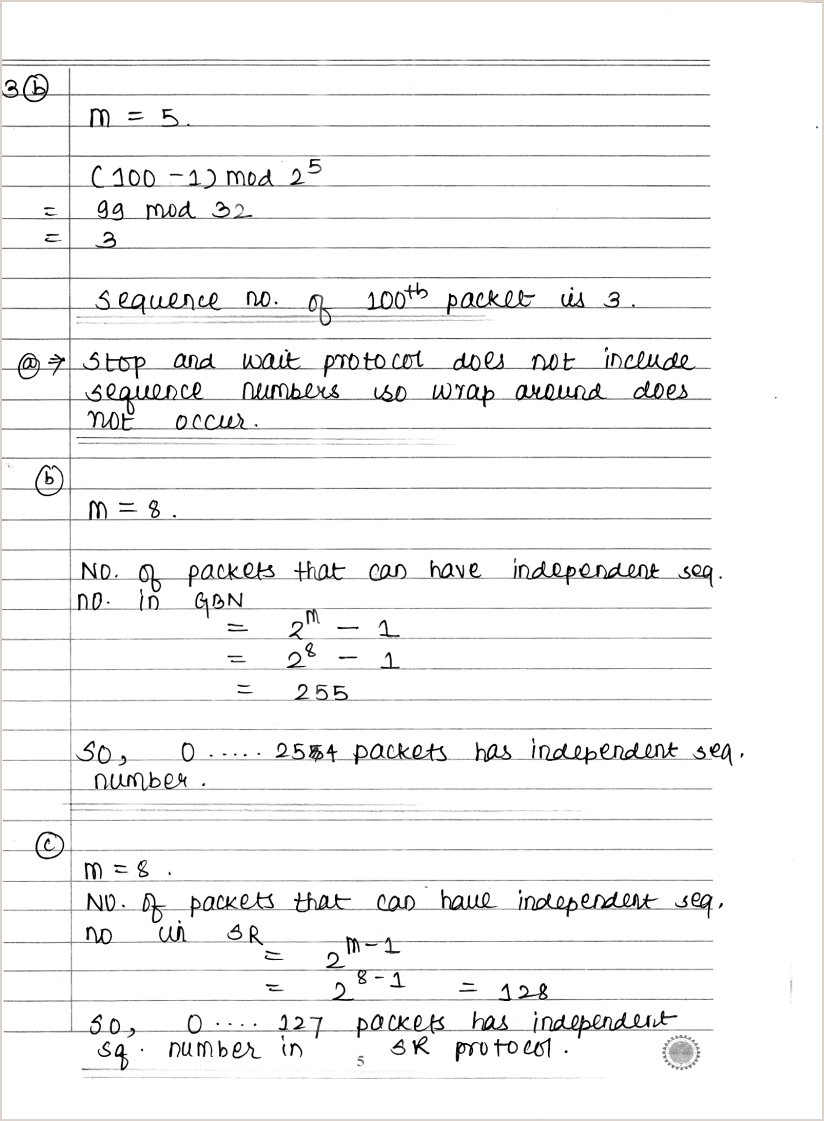 3 (b)
m = 5.
(100 - 1) mod 2^5
= 99 mod 32
= 3
sequence no. of 100th packet is 3.
(a) ⇒ Stop and wait protocol does not include
sequence numbers so wrap around does
not occur.
(b)
m = 8.
NO. of packets that can have independent seq.
no. in GBN
= 2^m - 1
= 2^8 - 1
= 255
SO, 0 ..... 254 packets has independent seq.
number.
(c)
m = 8.
NO. of packets that can have independent seq.
no in SR
= 2^m-1
= 2^8-1 = 128
so, 0 .... 127 packets has independent
sq. number in SR protocol.
5